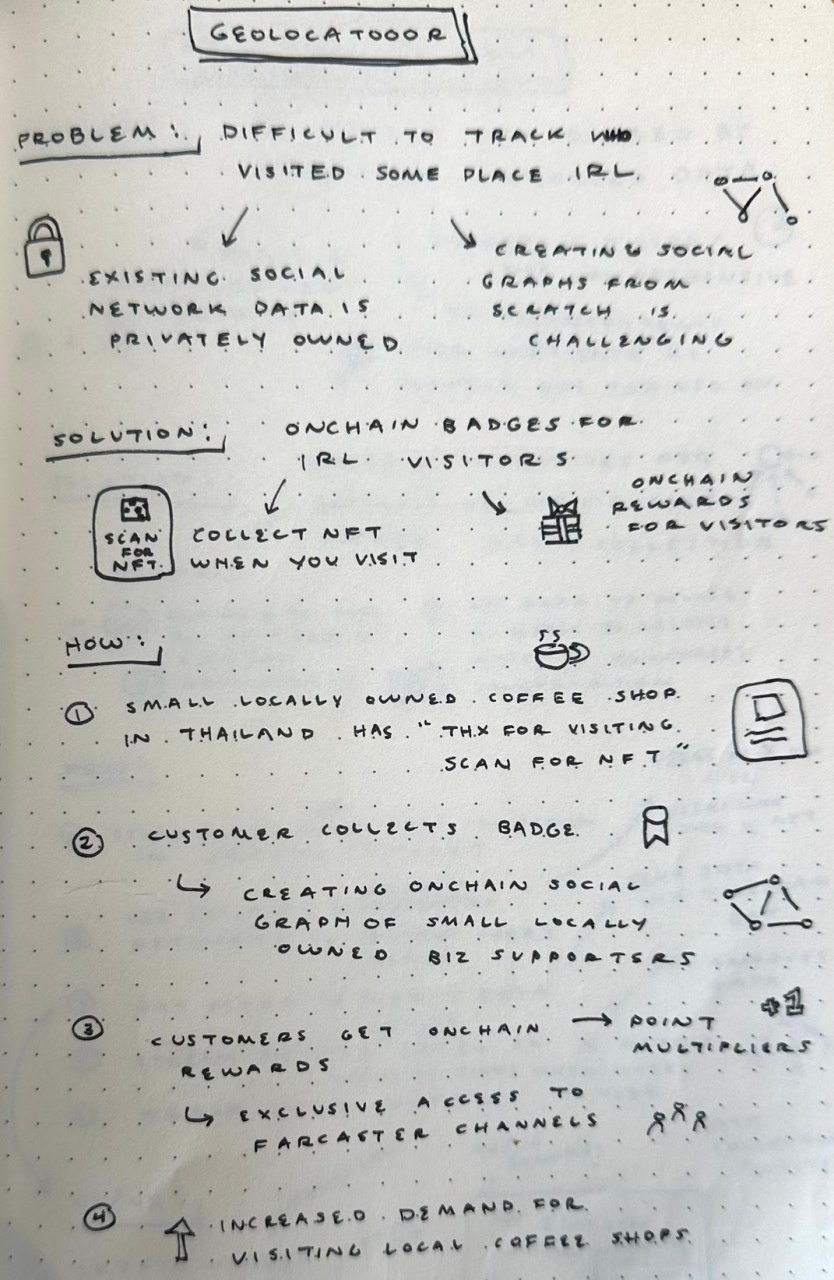 GEOLOCATOOOR
PROBLEM: DIFFICULT TO TRACK WHO
VISITED SOME PLACE IRL
EXISTING SOCIAL
NETWORK DATA IS
PRIVATELY OWNED
CREATING SOCIAL
GRAPHS FROM
SCRATCH IS
CHALLENGING
SOLUTION: ONCHAIN BADGES FOR
IRL VISITORS
SCAN
FOR
NFT
COLLECT NFT
WHEN YOU VISIT
ONCHAIN
REWARDS
FOR VISITORS
HOW:
1 SMALL LOCALLY OWNED COFFEE SHOP
IN THAILAND HAS "THX FOR VISITING
SCAN FOR NFT"
2 CUSTOMER COLLECTS BADGE
CREATING ONCHAIN SOCIAL
GRAPH OF SMALL LOCALLY
OWNED BIZ SUPPORTERS
3 CUSTOMERS GET ONCHAIN
REWARDS
→ POINT
MULTIPLIERS
+1
EXCLUSIVE ACCESS TO
FARCASTER CHANNELS
4 INCREASED DEMAND FOR
VISITING LOCAL COFFEE SHOPS